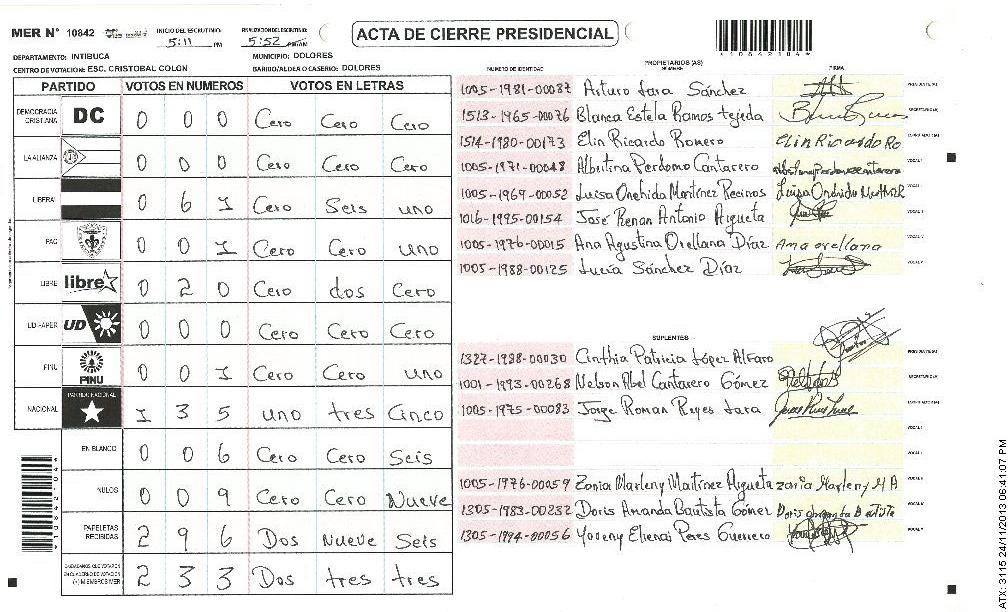 MER N° 10842 INICIO DEL ESCRUTINIO: 5:11 PM FINALIZACIÓN DEL ESCRUTINIO: 5:52 PM/AM
ACTA DE CIERRE PRESIDENCIAL
*10842104*
DEPARTAMENTO: INTIBUCA MUNICIPIO: DOLORES
CENTRO DE VOTACION: ESC. CRISTOBAL COLON BARIO/ALDEA O CASERIO: DOLORES
PARTIDO VOTOS EN NUMEROS VOTOS EN LETRAS
DEMOCRACIA CRISTIANA DC 0 0 0 Cero Cero Cero
LA ALIANZA 0 0 0 Cero Cero Cero
LIBERAL 0 6 1 Cero Seis uno
PAC 0 0 1 Cero Cero Uno
LIBRE libre 0 2 0 Cero dos Cero
UD-FAPER UD 0 0 0 Cero Cero Cero
PINU PINU 0 0 1 Cero Cero uno
NACIONAL PARTIDO NACIONAL 1 3 5 uno tres Cinco
EN BLANCO 0 0 6 Cero Cero Seis
NULOS 0 0 9 Cero Cero Nueve
PAPELETAS RECIBIDAS 2 9 6 Dos Nueve Seis
CIUDADANOS QUE VOTARON EN CUADERNO DE VOTACION (+) MIEMBROS MER 2 3 3 Dos tres tres
PROPIETARIOS (AS)
NUMERO DE IDENTIDAD NOMBRE FIRMA
1005-1981-00087 Arturo Lara Sánchez PRESIDENTE(A)
1513-1965-00076 Blanca Estela Ramos tejeda SECRETARIO(A)
1514-1980-00173 Elin Ricardo Romero Elin Ricardo Ro ESCRUTADOR(A)
1005-1971-00048 Albertina Perdomo Cantarero VOCAL I
1005-1969-00052 Luisa Onehida Martinez Recinos
1016-1995-00154 José Renan Antonio Argueta
1005-1976-00015 Ana Agustina Orellana Díaz Ana orellana
1005-1988-00125 Lucía Sánchez Díaz
SUPLENTES
1327-1988-00030 Cinthia Patricia López Alfaro PRESIDENTE(A)
1001-1993-00268 Nelson Abel Cantarero Gómez SECRETARIO(A)
1005-1975-00083 Jorge Roman Reyes Lara ESCRUTADOR(A)
1005-1976-00059 Zonia Marleny Martinez Argueta zonia Marleny M A
1305-1983-00232 Doris Amanda Bautista Gómez Doris Amanda Bautista
1305-1994-00056 Yoseny Elienai Peres Guerrero
ATX: 3115 24/11/2013 06:41:07 PM